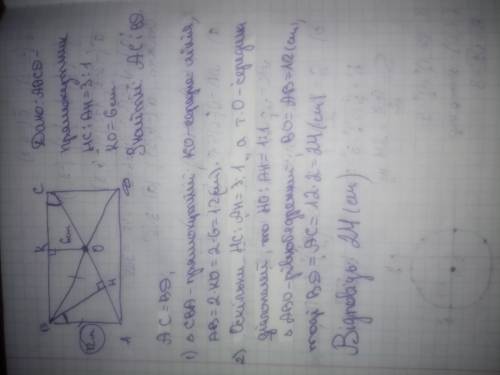 Дано: ABCD -
прямокутник
HC:AH=3:1
KO=6cm
Знайти: AC; BD.
B
K
C
6cm
O
H
A
D
AC=BD,
1) △ CBA - прямокутний, KO - середня лінія,
AB=2·KO=2·6=12(см).
2) Оскільки HC:AH=3:1, а т.O - середина
діагоналі, то HO:AH=1:1.
△ ABO - рівнобедрений, BO=AB=12(см),
тоді BD=AC=12·2=24(см)
Відповідь: 24(см)